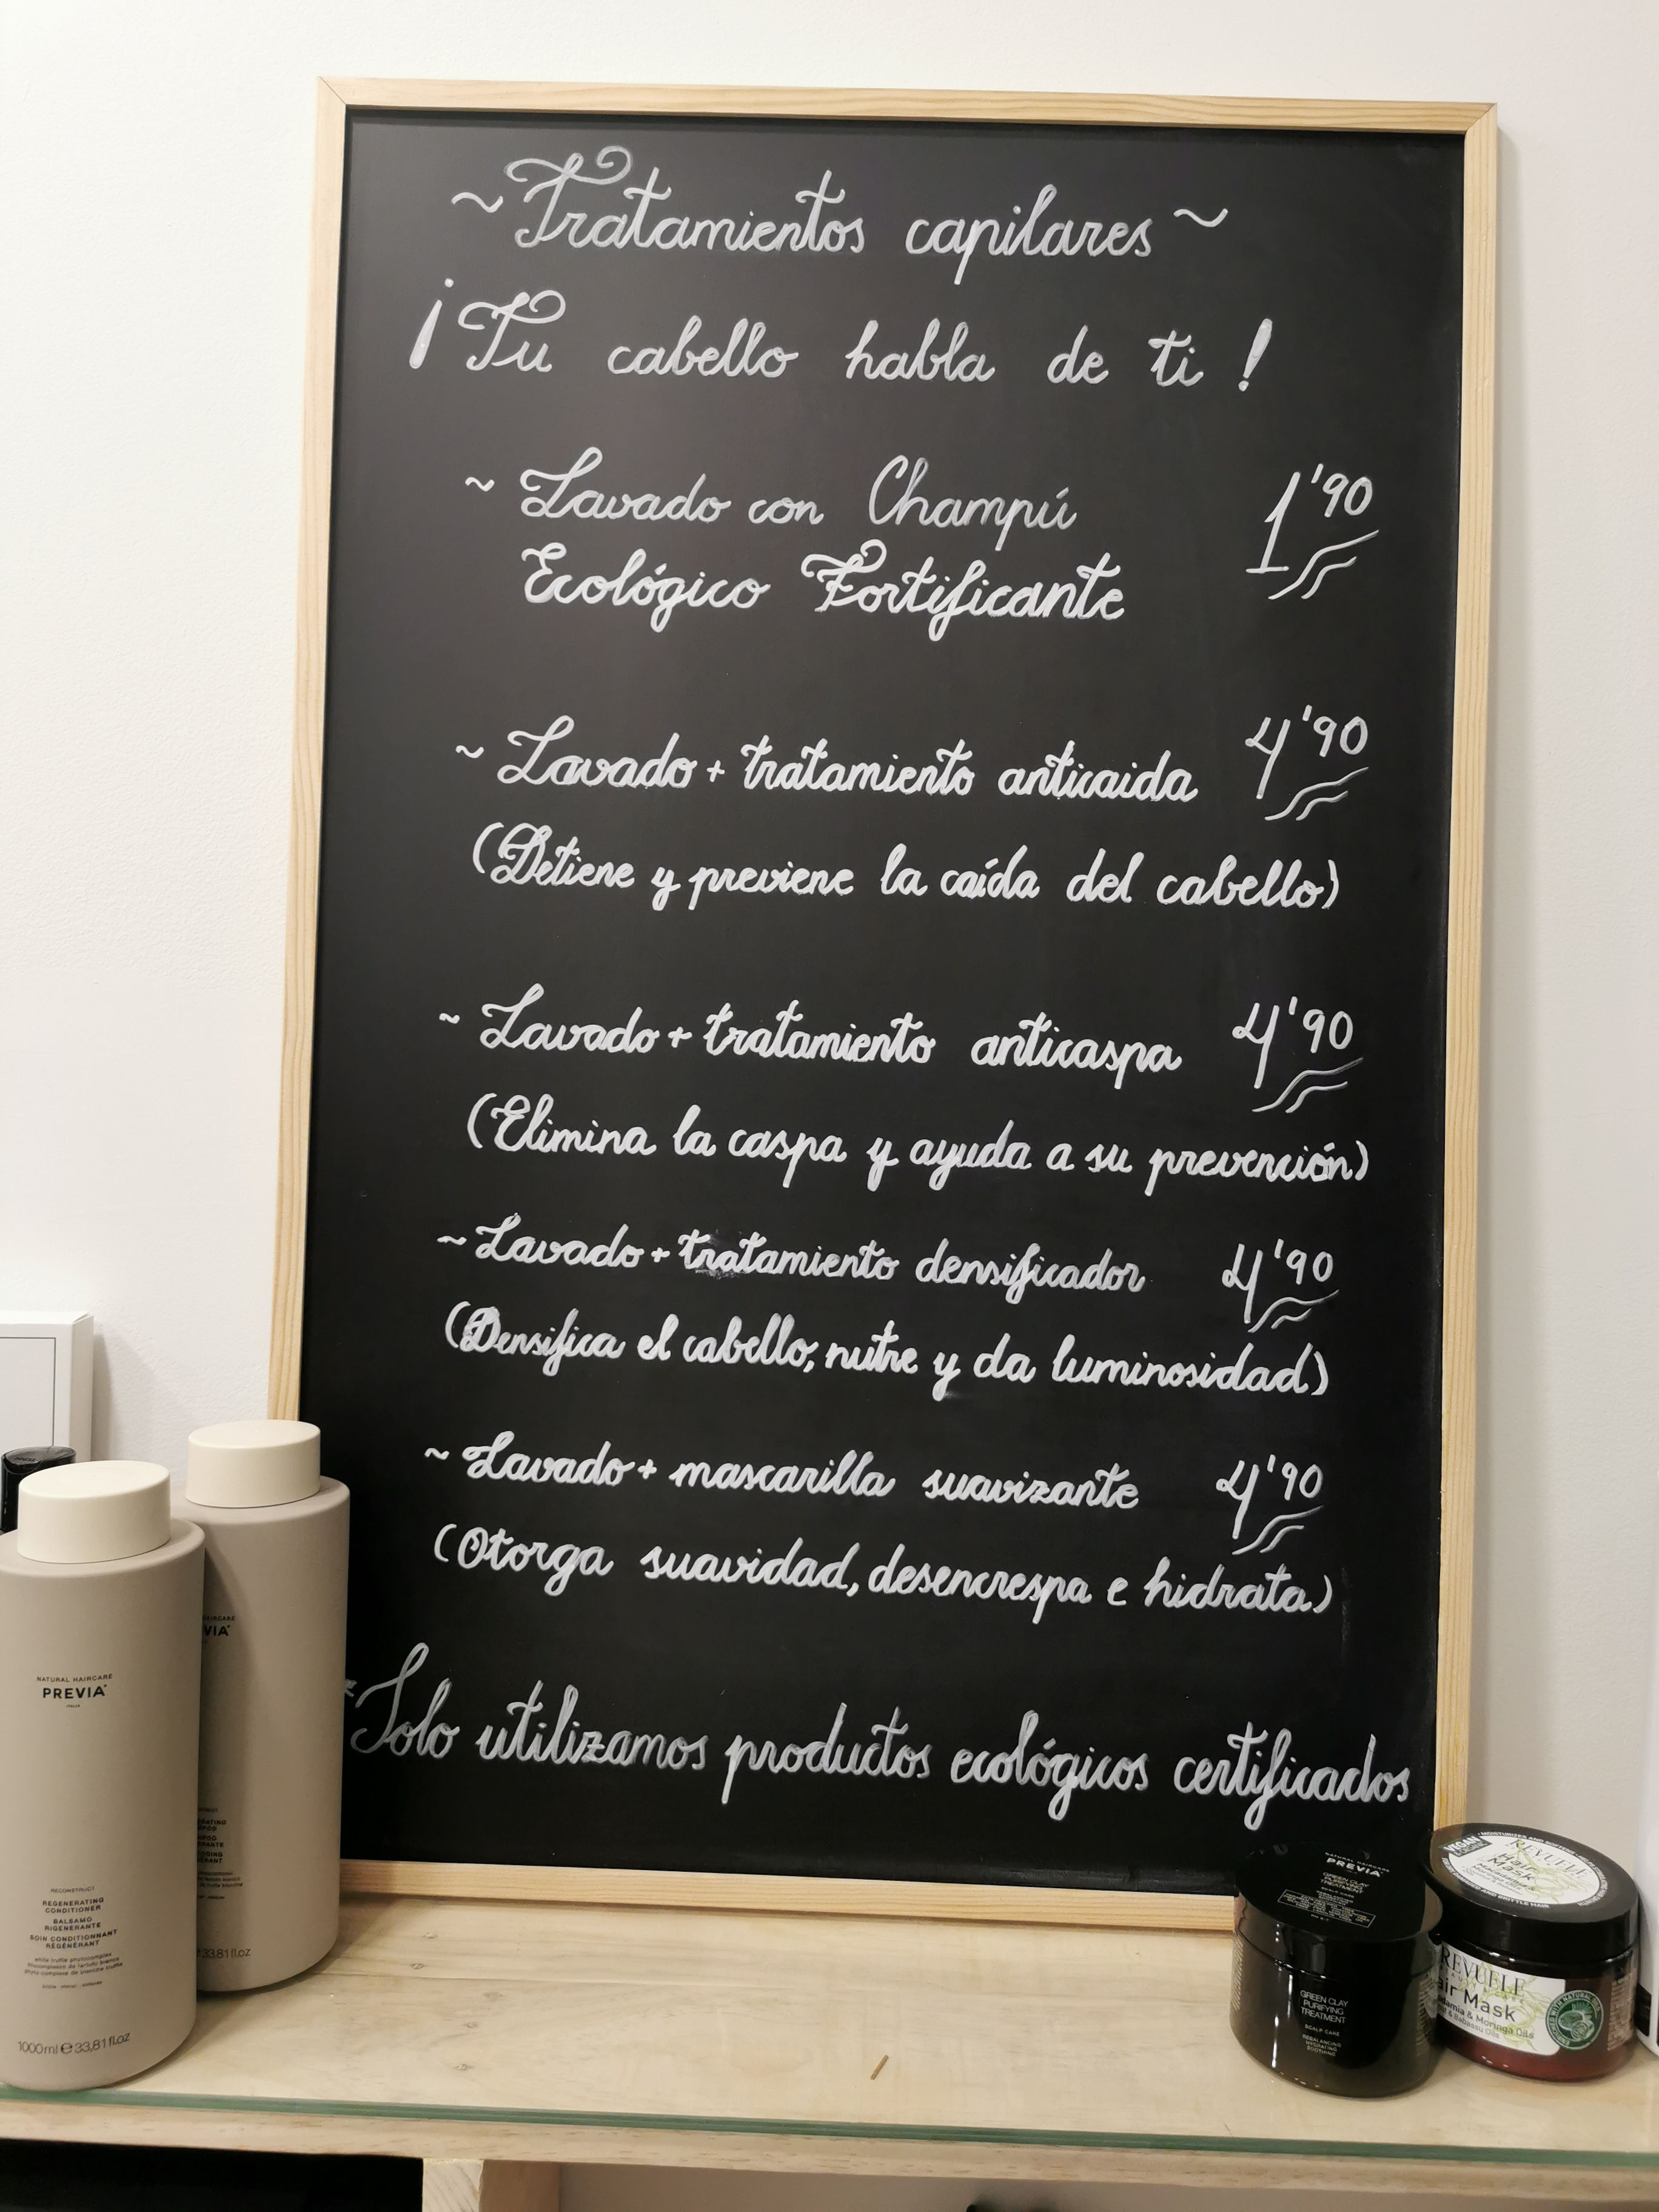 ~Tratamientos capilares~
¡Tu cabello habla de ti!
~ Lavado con Champú 1'90
Ecológico Fortificante
~ Lavado + tratamiento anticaida 4'90
(Detiene y previene la caída del cabello)
~ Lavado + tratamiento anticaspa 4'90
(Elimina la caspa y ayuda a su prevención)
~ Lavado + tratamiento densificador 4'90
(Densifica el cabello, nutre y da luminosidad)
~ Lavado + mascarilla suavizante 4'90
(Otorga suavidad, desencrespa e hidrata)
*Solo utilizamos productos ecológicos certificados
NATURAL HAIRCARE
PREVIA
RECONSTRUCT
REGENERATING
CONDITIONER
BALSAMO
RIGENERANTE
SOIN CONDITIONNANT
RÉGÉNÉRANT
white truffle phytocomplex
1000 ml e 33,81 fl.oz
33,81 fl.oz
NATURAL HAIRCARE
PREVIA
GREEN CLAY
PURIFYING
TREATMENT
GREEN CLAY
PURIFYING
TREATMENT
SCALP CARE
REBALANCING
HYDRATING
SOOTHING
VEGAN
REVUELE
Hair
Mask
REVUELE
Hair Mask
& Moringa Oils
& Babassu Oils